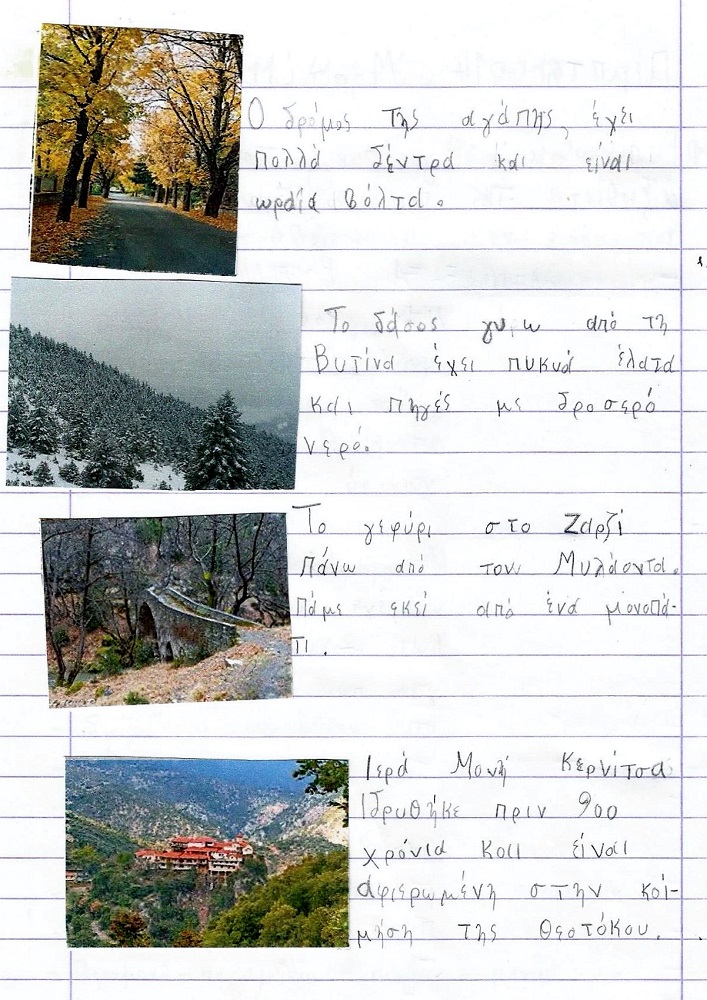 Ο δρόμος της αγάπης, έχει
πολλά δέντρα και είναι
ωραία βόλτα.
Το δάσος γυρω από τη
Βυτίνα έχει πυκνά έλατα
και πηγές με δροσερό
νερό.
Το γεφύρι στο Ζαρζί
πάνω από τον Μυλάοντα.
Πάμε εκεί από ένα μονοπά-
τι.
Ιερά Μονή Κερνίτσα
Ιδρυθήκε πριν 900
χρόνια και είναι
αφιερωμένη στην κοί-
μηση της Θεοτόκου.